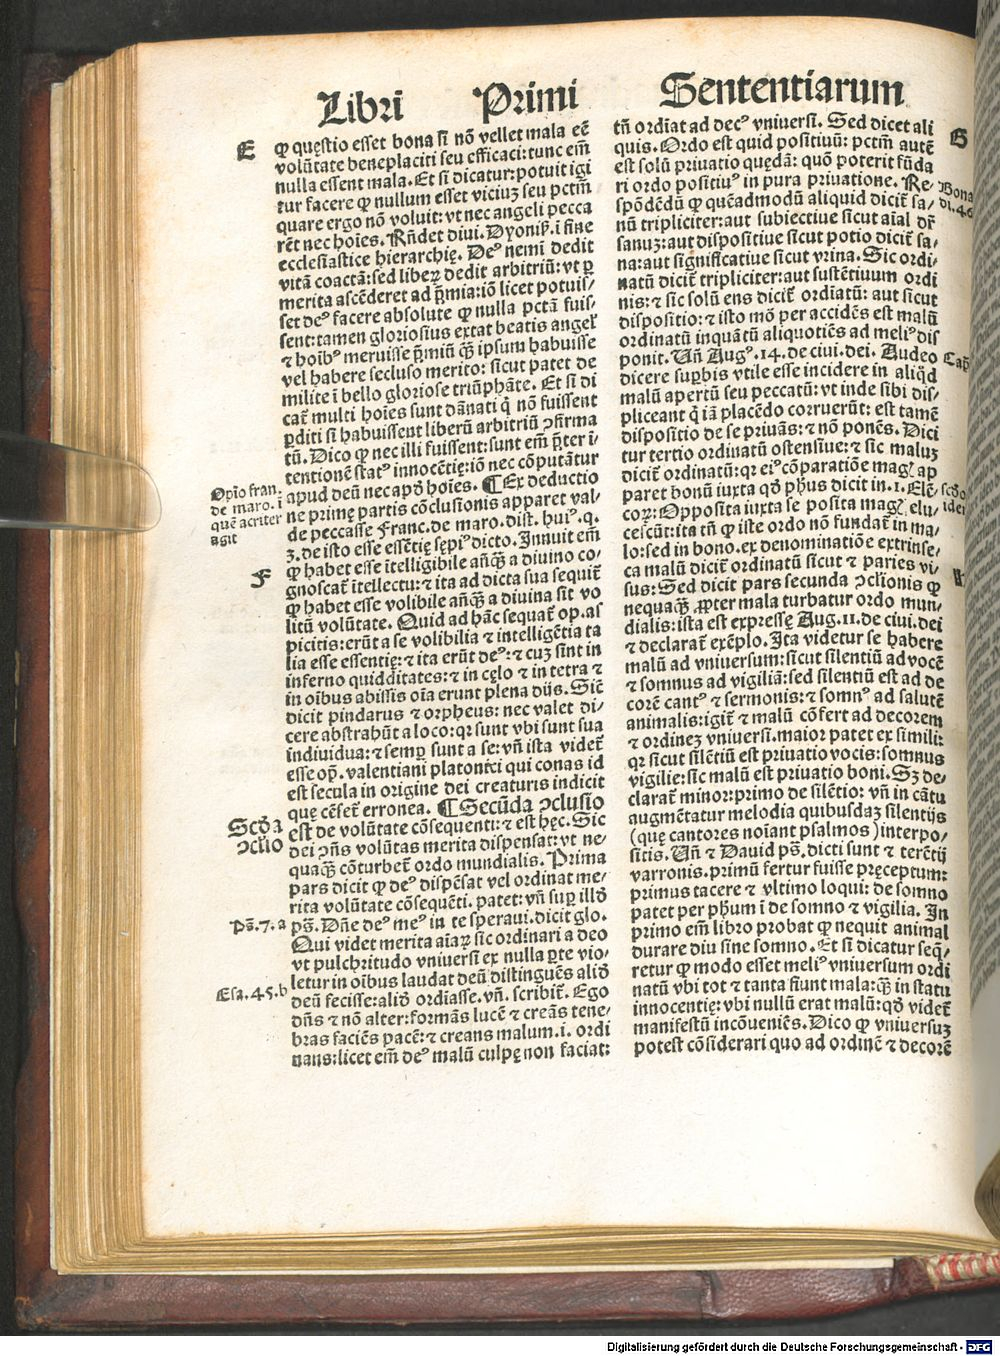 Libri Primi Sententiarum
E
ꝙ quęstio esset bona si nõ vellet mala eẽ
volũtate beneplaciti seu efficaci: tunc em̃
nulla essent mala. Et si dicatur: potuit igi
tur facere ꝙ nullum esset viciuȝ seu pctm̃
quare ergo nõ voluit: vt nec angeli pecca
rẽt nec hoĩes. Rñdet diui. Dyonisꝰ. ĩ fine
ecclesiastice hierarchię. Deꝰ nemĩ dedit
vitã coactã: sed liberȝ dedit arbitriũ: vt ꝑ
merita ascẽderet ad p̃mia: iõ licet potuis/
set deꝰ facere absolute ꝙ nulla pctã fuis/
sent: tamen gloriosius extat beatis angeł
⁊ hoĩbꝰ meruisse p̃miũ q̃ȝ ipsum habuisse
vel habere secluso merito: sicut patet de
milite ĩ bello gloriose triũphãte. Et si di
cat̃ multi hoĩes sunt dãnati q̇ nõ fuissent
ꝑditi si habuissent liberũ arbitriũ ꝯfirma
tũ. Dico ꝙ nec illi fuissent: sunt em̃ p̃ter ĩ/
tentionẽ statꝰ innocẽtię: iõ nec cõputãtur
apud deũ nec apđ hoĩes. ¶ Ex deductio
ne prime partis cõclusionis apparet val/
de peccasse Franc. de maro. dist. huiꝰ. q.
3. de isto esse essẽtię sępiꝰ dicto. Innuit em̃
ꝙ habet esse ĩtelligibile añq̃ȝ a diuino co/
gnoscat̃ ĩtellectu: ⁊ ita ad dicta sua sequit̃
ꝙ habet esse volibile añq̃ȝ a diuina sit vo
litũ volũtate. Quid ad hãc sequat̃ op. as
picitis: erũt a se volibilia ⁊ intelligẽtia ta
lia esse essentię: ⁊ ita erũt deꝰ: ⁊ cuȝ sint in
inferno quidditates: ⁊ in cęlo ⁊ in tetra ⁊
in oĩbus abissis oĩa erunt plena dijs. Sic̃
dicit pindarus ⁊ orpheus: nec valet di/
cere abstrahũt a loco: qꝛ sunt vbi sunt sua
indiuidua: ⁊ semꝑ sunt a se: vñ ista videt̃
esse op̃. valentiani platonici qui conas id
est secula in origine dei creaturis indicit
que cẽset̃ erronea. ¶ Secũda ꝯclusio
est de volũtate cõsequenti: ⁊ est hęc. Sic
dei ꝯñs volũtas merita dispensat: vt ne/
quaq̃ȝ cõturbet̃ ordo mundialis. Prima
pars dicit ꝙ deꝰ dispẽsat vel ordinat me/
rita volũtate cõsequẽti. patet: vñ suꝑ illđ
ps̃. Dñe deꝰ meꝰ in te speraui. dicit glo.
Qui videt merita aĩaꝝ sic ordinari a deo
vt pulchritudo vniuersi ex nulla ꝑte vio/
letur in oĩbus laudat deũ distinguẽs aliđ
deũ fecisse: aliđ ordiasse. vñ. scribit̃. Ego
dñs ⁊ nõ alter: formãs lucẽ ⁊ creãs tene/
bras faciẽs pacẽ: ⁊ creans malum. i. ordi
nans: licet em̃ deꝰ malũ culpę non faciat:
Opĩo fran.
de maro. ĩ
quẽ acriter
agit
F
Scđa
ꝯclĩo
Ps̃. 7. a
Esa. 45. b
tñ ordiat ad decꝰ vniuersi. Sed dicet ali
quis. Ordo est quid positiuũ: pctm̃ autẽ
est solũ priuatio quędã: quõ poterit fũda
ri ordo positiuꝰ in pura priuatione. Re/
spõdẽdũ ꝙ quẽadmodũ aliquid dicit̃ sa/
nũ tripliciter: aut subiectiue sicut aĩal dr̃
sanuȝ: aut dispositiue sicut potio dicit̃ sa/
na: aut significatiue sicut vrina. Sic ordi/
natũ dicit̃ tripliciter: aut sustẽtiuum ordi
nis: ⁊ sic solũ ens dicit̃ ordiatũ: aut sicut
dispositio: ⁊ isto mõ per accidẽs est malũ
ordinatũ inquãtũ aliquotiẽs ad meliꝰ dis
ponit. Uñ Augꝰ. 14. de ciui. dei. Audeo
dicere suꝑbis vtile esse incidere in aliq̇d
malũ apertũ seu peccatũ: vt inde sibi dis/
pliceant q̇ iã placẽdo corruerũt: est tamẽ
dispositio de se priuãs: ⁊ nõ ponẽs. Dici
tur tertio ordinatũ ostensiue: ⁊ sic maluȝ
dicit̃ ordinatũ: qꝛ eiꝰ cõparatiõe magꝭ ap
paret bonũ iuxta qđ pħus dicit in. 1. Elẽ/
coꝝ: Opposita iuxta se posita magꝭ elu/
cescũt: ita tñ ꝙ iste ordo nõ fundat̃ in ma/
lo: sed in bono. ex denominatiõe extrinse/
ca malũ dicit̃ ordinatũ sicut ⁊ paries vi/
sus: Sed dicit pars secunda ꝯclĩonis ꝙ
nequaq̃ȝ ꝓpter mala turbatur ordo mun/
dialis: ista est expressę Aug. 11. de ciui. dei
⁊ declarat̃ exẽplo. Ita videtur se habere
malũ ad vniuersum: sicut silentiũ ad vocẽ
⁊ somnus ad vigiliã: sed silentiũ est ad de
corẽ cantꝰ ⁊ sermonis: ⁊ somnꝰ ad salutẽ
animalis: igit̃ ⁊ malũ cõfert ad decorem
⁊ ordineȝ vniuersi. maior patet ex simili:
qꝛ sicut silẽtiũ est priuatio vocis: somnus
vigilie: sic malũ est priuatio boni. Sȝ de/
clarat̃ minor: primo de silẽtio: vñ in cãtu
augmẽtatur melodia quibusdaȝ silentijs
(quę cantores noĩant psalmos) interpo/
sitis. Uñ ⁊ Dauid ps̃. dicti sunt ⁊ terẽtij
varronis. primũ fertur fuisse pręceptum:
primus tacere ⁊ vltimo loqui: de somno
patet per pħum ĩ de somno ⁊ vigilia. In
primo em̃ libro probat ꝙ nequit animal
durare diu sine somno. Et si dicatur seq̃/
retur ꝙ modo esset meliꝰ vniuersum ordi
natũ vbi tot ⁊ tanta fiunt mala: q̃ȝ in statu
innocentię: vbi nullũ erat malũ: qđ videt̃
manifestũ incõueniẽs. Dico ꝙ vniuersuȝ
potest cõsiderari quo ad ordinẽ ⁊ decorẽ
G
Bona
di. 46
Capꝭ
scđo
Digitalisierung gefördert durch die Deutsche Forschungsgemeinschaft - DFG